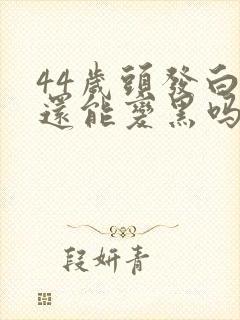 44歲頭發白
還能變黑吗
段妍青